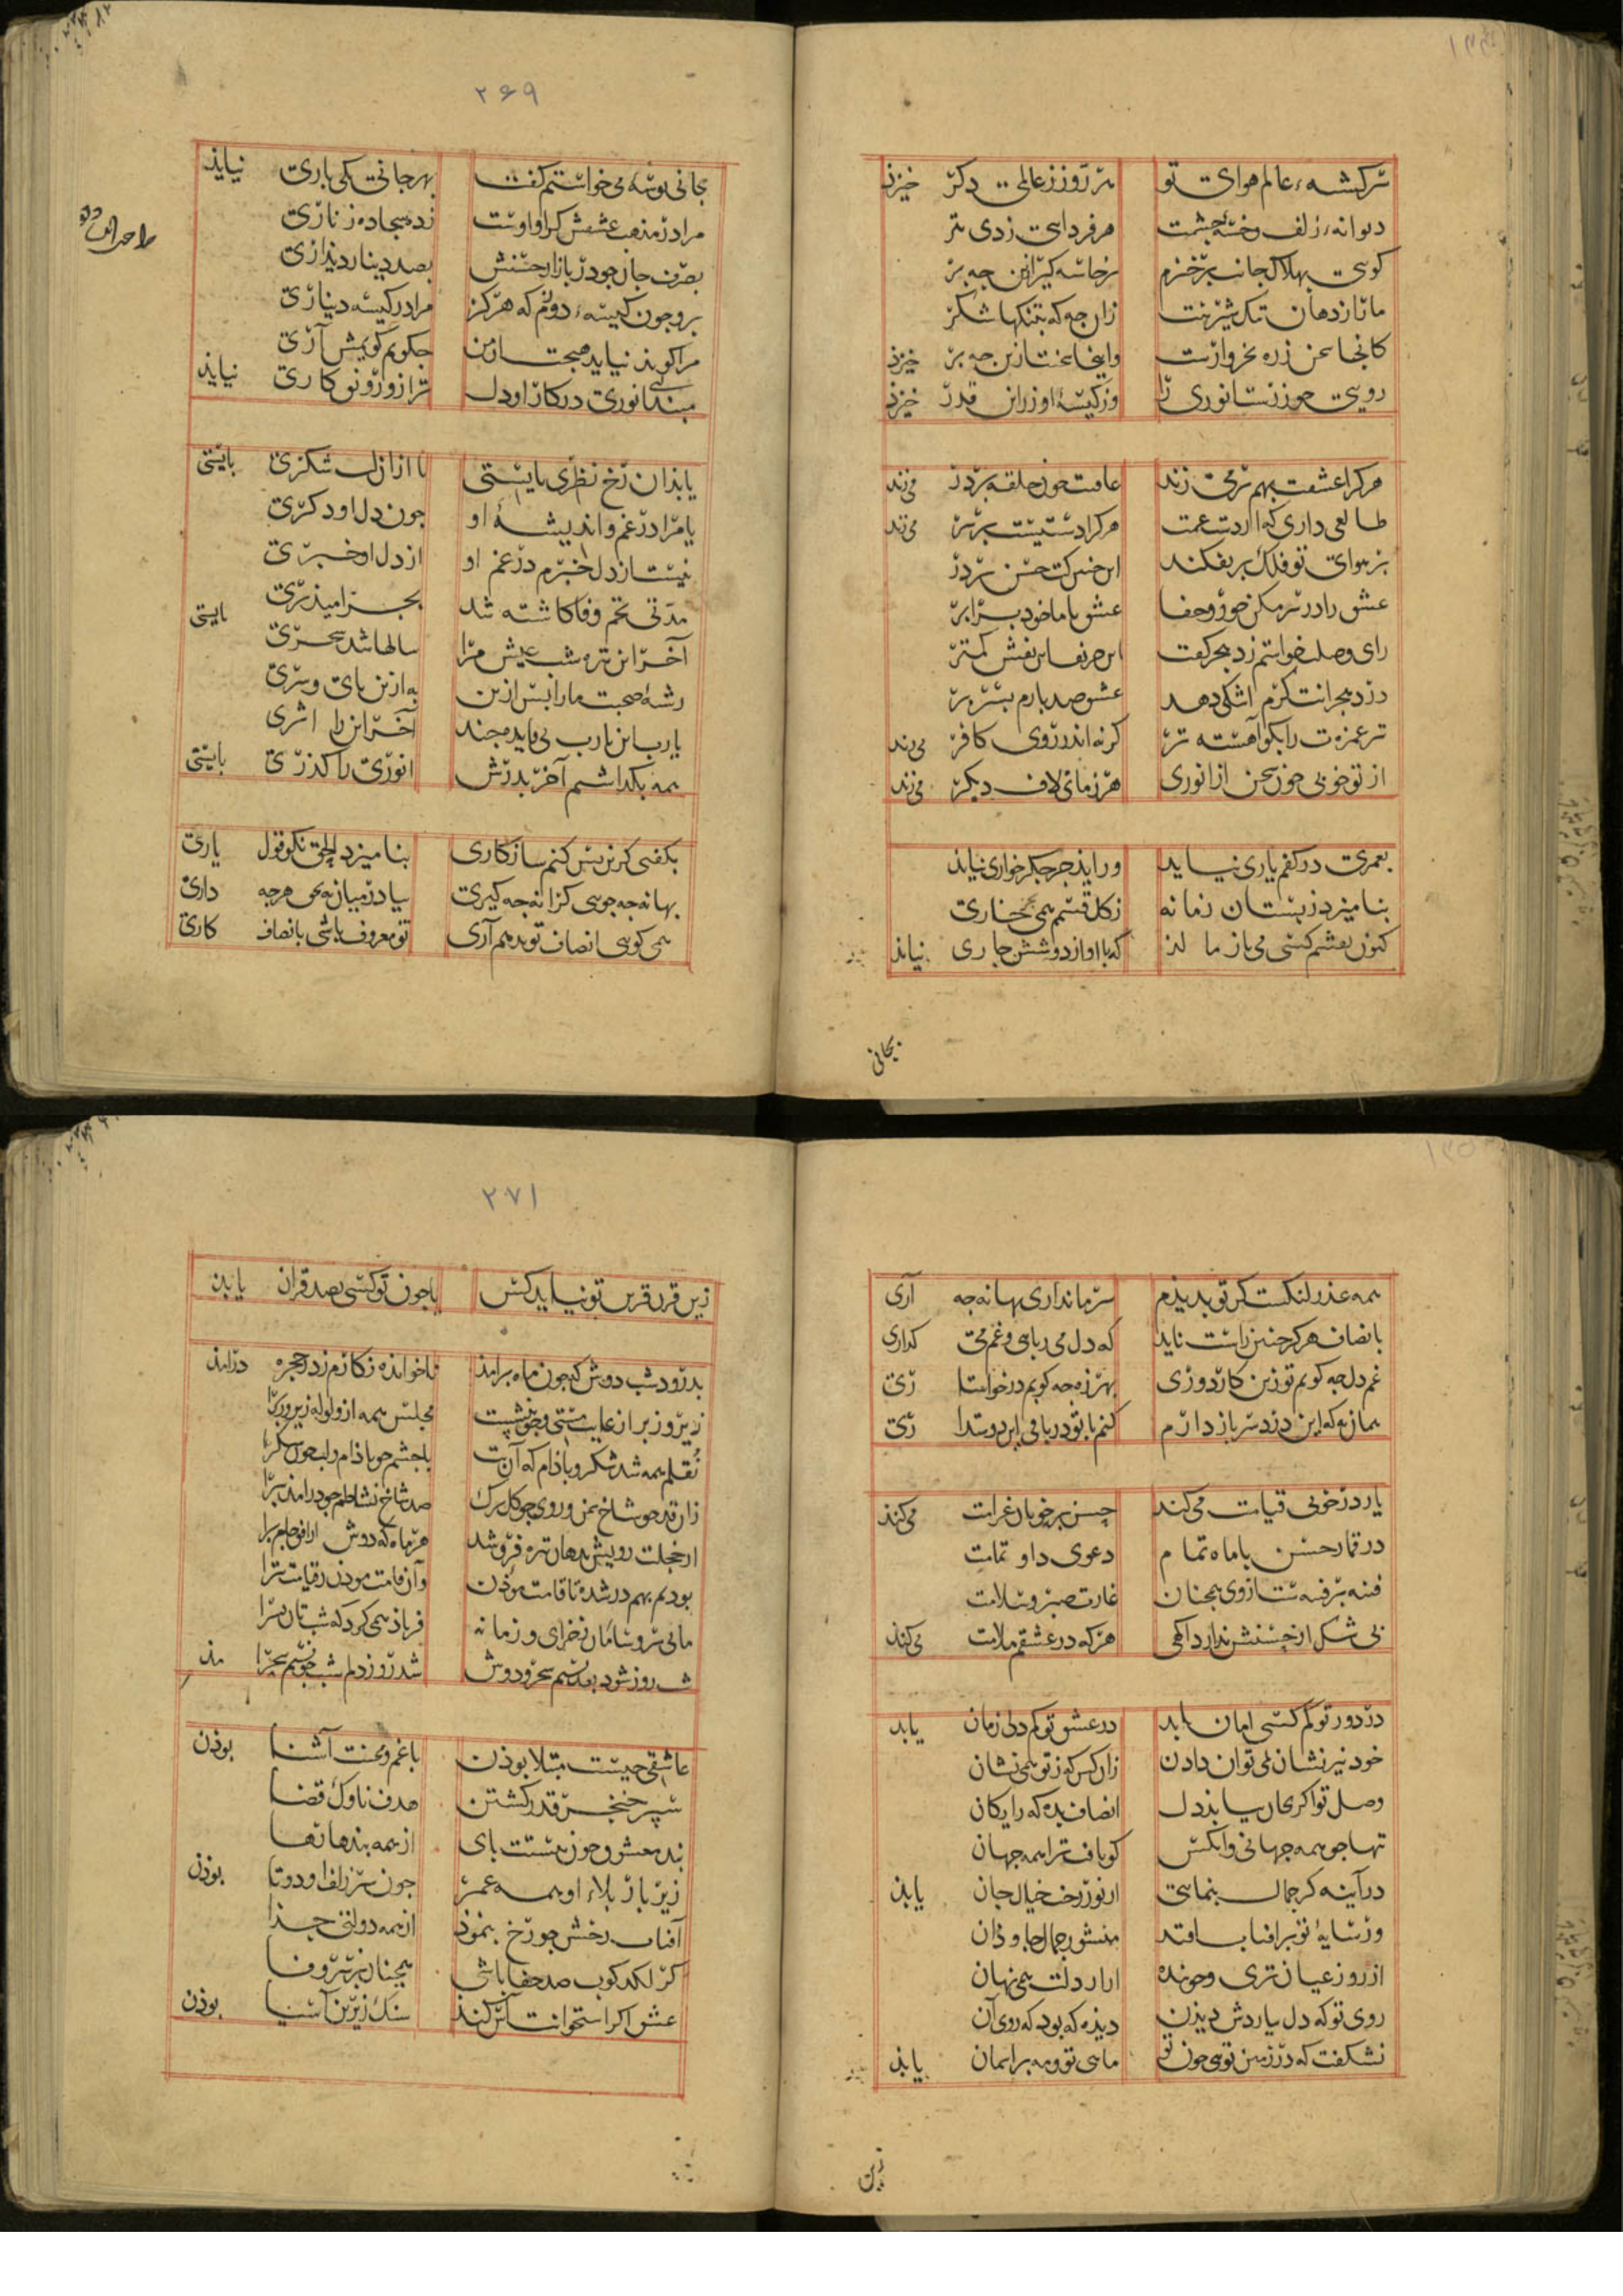 سرکشه عالم هوای تو هر روز ز عالمی دکر خیزذ
دیوانه زلف و خسته چشمت هر فردایی ز دی بتر
کویی بهلاک جان برخیزم
ما تا ز دهان تنک شیرینت زان جه که بتنکها شکر
کانجا سخن ذره بخروارست واینجا سخنت ازین جه بر خیزذ
رویی جو زرست انوری را وز کیسهٔ او زر این قدر خیزذ
هر کرا عشقت بهم بر می زند عاقبت جون حلقه بر در می زند
طالعی داری که از دست غمت هر کرا دستیست بر سر می زند
بر هوای تو فلک پر بفکند این جنین کت حسن بر در
عشق را در سر مکن جور و جفا عشق با ما خود برابر
رای وصلت خواستم زد هجر کفت این حریف این نقش کمتر
درد هجرانت کرم اشکی دهد عشو صد بارم بسر بر
تر غمزه ت را بکو آهسته تر کرنه اندر روی کافر می زند
از تو خوبی جون سخن از انوری هر زمانی لاف دیکر می زند
بعمری در کفم یاری نیاید ور اید جز جکر خواری نیاید
بنامیزد ز بستان زمانه ز کل قسمم همی خاری
کنون بعشم کستی می باز ما لذ که با او از دو شش جاری نیاذ
بجانی
۲۶۹
بجانی بوسهٔ می خواستم کفت بهر جانی یکی باری نیاید
مرا در مذهب عشقش کرا و اوست زده سجاده زناری
بصرف جان جو در بازار حسنش بصد دینار دیداری
برو جون کیسهٔ دوزم که هرکز مرا در کیسه دیناری
مرا کوید نیاید هیچت از من جکویم کویمش آری
ببند انوری در کار او دل ترا زو روز نو کاری نیاید
یا بذان رخ نظری بایستی یا از ان لب شکری بایستی
یا مرا در غم و اندیشهٔ او جون دل او دکری
نیست از دل خبرم در غم او از دل او خبری
مدتی تخم وفا کاشته شد بجز امید بری بایستی
آخر این تیره شب عیش مرا سالها شد سحری
رشهٔ صحبت ما را بس ازین به ازین پای و سری
یارب این یارب بی فایده جند آخر این را اثری
همه بکذاشتیم آخر بدرش انوری را کذری بایستی
بکفتی کزین بس کنم سازکاری بنامیزد الحق نکو قول یاری
بهانه جه جویی کرانه جه کیری بیا در میان نه همی هرجه داری
همی کویی انصاف تو بدهم آری تو معروف باشی بانصاف کاری
همه عذر لنکست کز تو بدیذم سر ما نداری بهانه جه آری
بانصاف هرکز جنین راست ناید که دل می ربایی و غم می کذاری
غم دل جه کویم تو زین کار دوری بهرزه جه کویم در خواستا ری
همان به که این درد سر باز دارم کنم با تو در باقی این دوستدا ری
یار در خوبی قیامت می کند حسن بر خوبان غرامت می کند
در قمار حسن با ماه تمام دعوی داو تمامت
فتنه بر فتنه ست از وی همجنان غارت صبر و سلامت
بی شکل از حسنش ندارد آکهی هر که در عشقم ملامت می کند
در دور تو کم کسی امان یابد در عشق تو کم دلی زمان یابد
خود نیز نشان می توان دادن زان کس که ز تو همی نشان
وصل تو اکر بجان بیابذ دل انصاف بده که رایکان
تنها جو همه جهانی وانکس کو یافت ترا همه جهان
در آینه کر جمال بنمایی از نور رخت خیال جان یابذ
ور سایهٔ تو بر افتاب افتد منشور جمال جاودان
از روز عیان تری و جوینده از راز دلت همی نهان
روی تو که دل یاردش دیدن دیذه که بود که روی آن
نشکفت که در زمین توی جون تو ماهی تو و مه بر اسمان یابذ
زین
۲۷۱
زین قرن قرین تو نیاید کس یا جون تو کسی بصد قران یابذ
بدرود شب دوش که جون ماه برامذ ناخوانده نکارم ز در حجره درامذ
زیر و زبر از غایت مستی و جو بنشست مجلس همه از ولوله زیر و زبرا
نقلم همه شد شکر و باذام که آن بت با جشم جو باذام و لب جون شکرا
زان قد جو شاخ سمن و روی جو کل برک صد شاخ نشاطم جو درامذ ببرا
از خجلت رویش بدهان تیره فرو شد هر ماه که دوش از افق جام برا
بودیم بهم در شده تا قامت موذن وان قامت موذن ز قیامت بترا
ما بی سر و سامان ز خرابی و زمانه فریاذ همی کرد که شبتان بسرا
شب روز شود بعد نسیم سحر و دوش شد روز دلم شب جو نسیم سحرا مذ
عاشقی جیست مبتلا بوذن با غم و محنت آشنا بوذن
سپر خنجر قدر کشتن هدف ناوک قضا
بند معشوق جون بستت پای از همه بندها رها
زیر بار بلاء او همه عمر جون سر زلف او دوتا بوذن
آفتاب رخش جو رخ بنموذ از همه دولتی جذا
کر لکدکوب صد جفا باشی همجنان بر سر وفا
عشق اکر استخوانت آس کند سنک زیرین آسیا بوذن